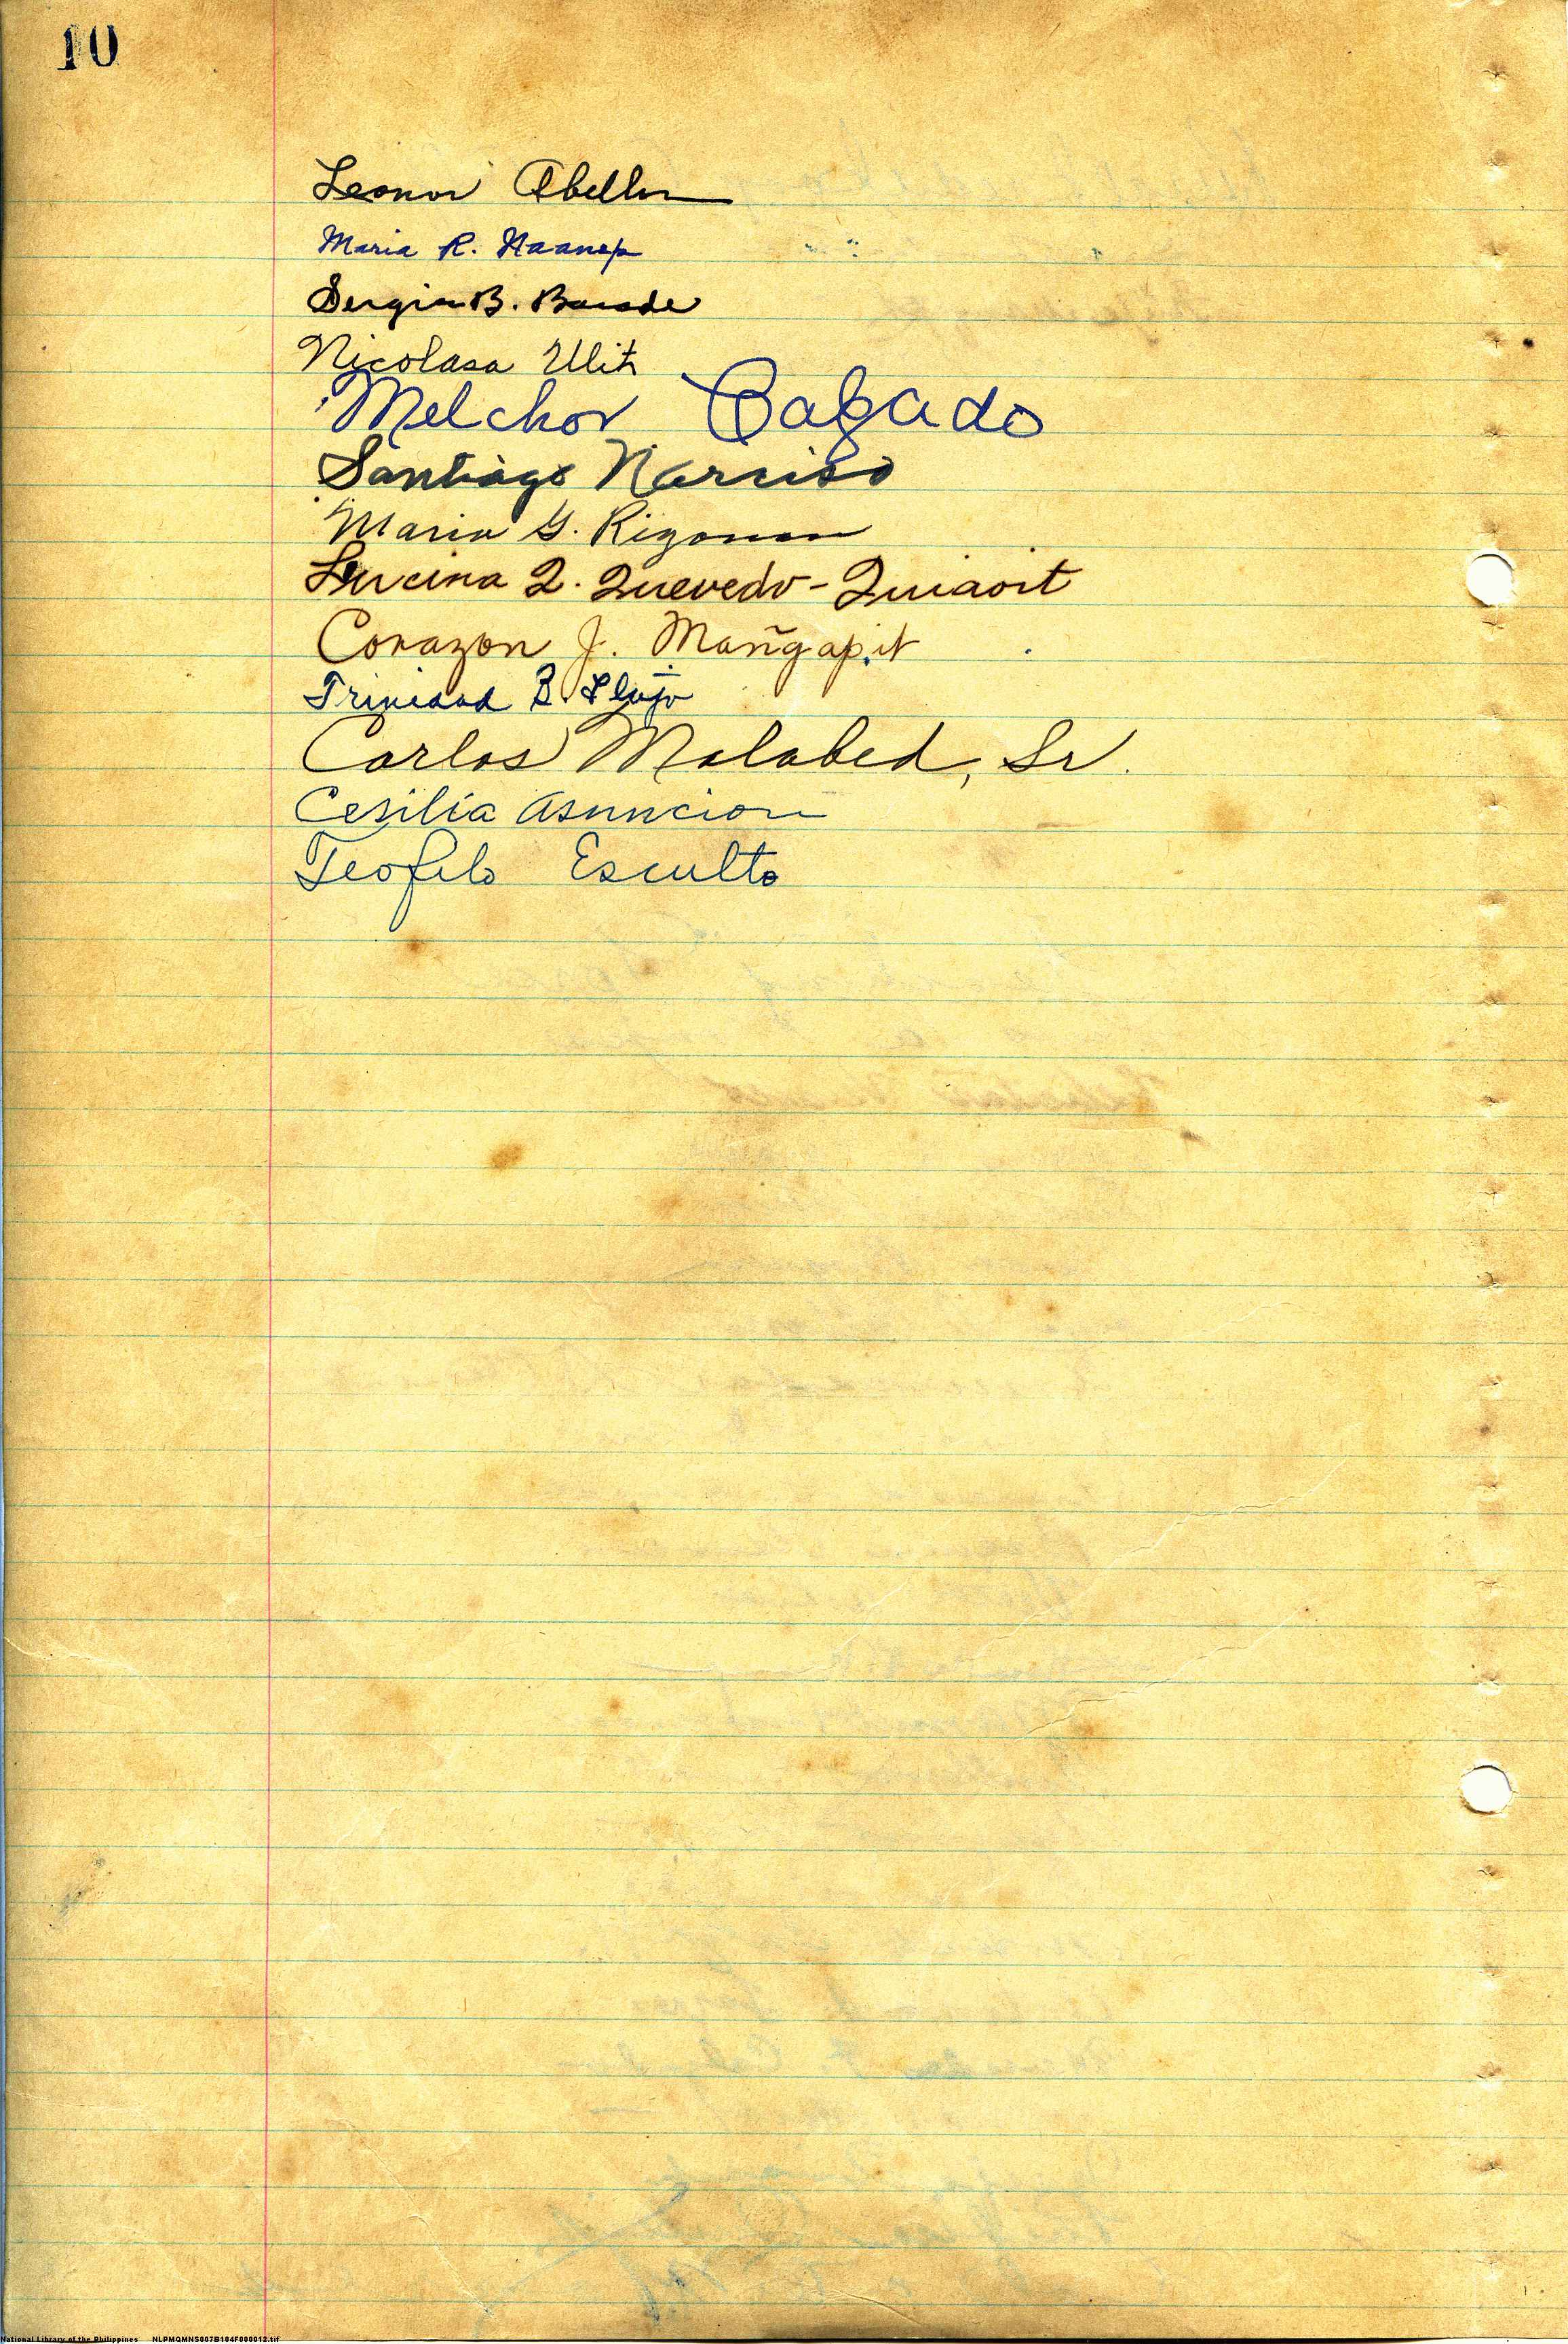 10
Leonor Abellon
Maria R. Haanep
Sergia B.
Nicolasa Ulit
Melchor Cabado
Santiago Narciso
Maria G. Rigonan
Lucina Q. Quevedo-Quiaoit
Corazon J. Mañgapit
Trinidad B. Flojo
Carlos Malabed, Sr.
Cesilia Asuncion
Teofilo Esculto
National Library of the Philippines NLPMQMNS007B104F000012.tif